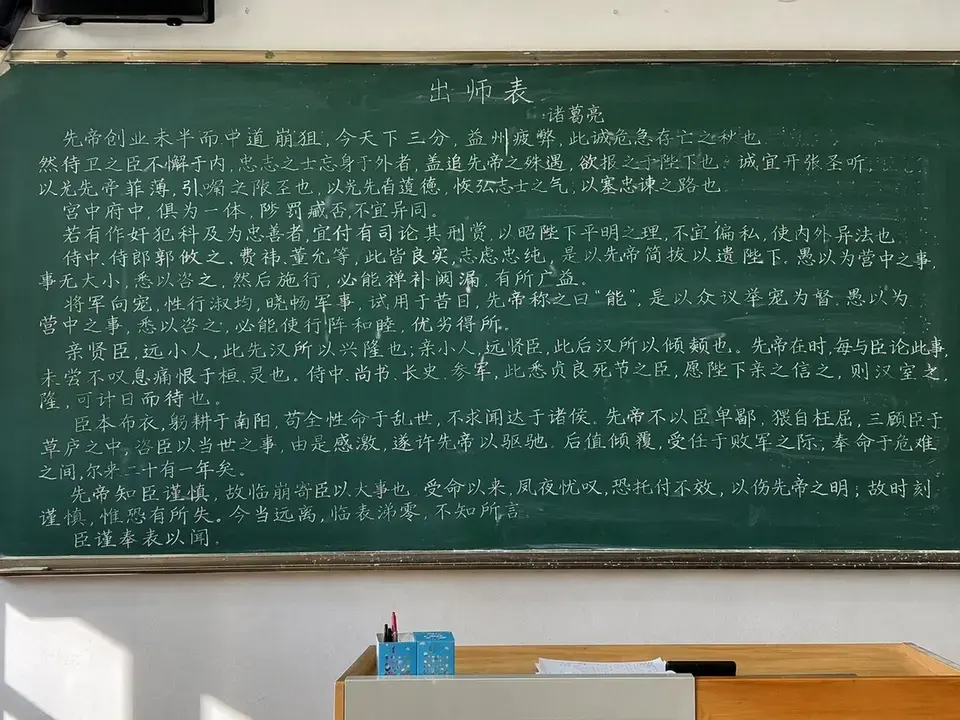 出师表
诸葛亮
先帝创业未半而中道崩狙,今天下三分,益州疲弊,此诚危急存亡之秋也.
然侍卫之臣不懈于内,忠志之士忘身于外者,盖追先帝之殊遇,欲报之于陛下也.诚宜开张圣听,
以光先帝菲薄,引喻之限圣也,以光先自道德,恢弘志士之气,以塞忠谏之路也.
宫中府中,俱为一体,陟罚臧否,不宜异同。
若有作奸犯科及为忠善者,宜付有司论其刑赏,以昭陛下平明之理,不宜偏私,使内外异法也.
侍中、侍郎郭攸之、费祎、董允等,此皆良实,志虑忠纯,是以先帝简拔以遗陛下.愚以为营中之事,
事无大小,悉以咨之,然后施行,必能裨补阙漏,有所广益。
将军向宠,性行淑均,晓畅军事,试用于昔日,先帝称之曰“能”,是以众议举宠为督.愚以为
营中之事,悉以咨之,必能使行阵和睦,优劣得所。
亲贤臣,远小人,此先汉所以兴隆也;亲小人,远贤臣,此后汉所以倾颓也。先帝在时,每与臣论此事,
未尝不叹息痛恨于桓、灵也。侍中、尚书、长史、参军,此悉贞良死节之臣,愿陛下亲之信之,则汉室之
隆,可计日而待也。
臣本布衣,躬耕于南阳,苟全性命于乱世,不求闻达于诸侯。先帝不以臣卑鄙,猥自枉屈,三顾臣于
草庐之中,咨臣以当世之事,由是感激,遂许先帝以驱驰.后值倾覆,受任于败军之际,奉命于危难
之间,尔来二十有一年矣。
先帝知臣谨慎,故临崩寄臣以大事也.受命以来,夙夜忧叹,恐托付不效,以伤先帝之明;故时刻
谨慎,惟恐有所失。今当远离,临表涕零,不知所言.
臣谨奉表以闻.